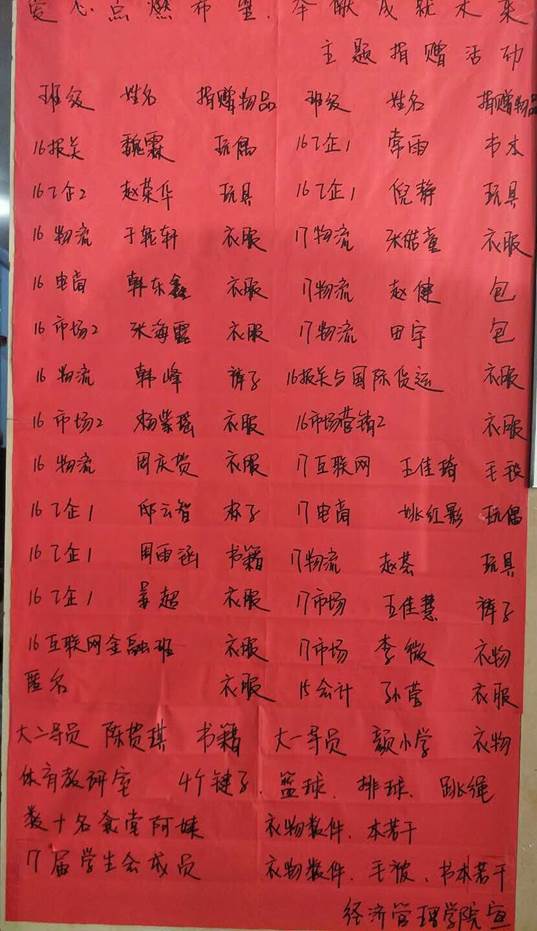 爱心点燃希望,奉献成就未来
主题捐赠活动
班级 姓名 捐赠物品 班级 姓名 捐赠物品
16报关 魏霖 玩偶 16工企1 常雨 书本
16工企2 赵荣华 玩具 16工企1 倪静 玩具
16物流 于乾轩 衣服 17物流 张皓童 衣服
16电商 韩东鑫 衣服 17物流 赵健 包
16市场2 张海露 衣服 17物流 田宇 包
16物流 韩峰 裤子 16报关与国际货运 衣服
16市场2 杨紫瑶 衣服 16市场营销2 衣服
16物流 周庆贺 衣服 17互联网 王佳琦 毛毯
16工企1 邱云智 杯子 17电商 姚红影 玩偶
16工企1 周雨涵 书籍 17物流 赵芸 玩具
16工企1 姜超 衣服 17市场 王佳慧 裤子
16互联网金融班 衣服 17市场 李微 衣物
匿名 衣服 15会计 孙莹 衣服
大二导员 陈贯琪 书籍 大一导员 颜小学 衣物
体育教研室 4个毽子、篮球、排球、跳绳
数十名食堂阿姨 衣物数件、本若干
17届学生会成员 衣物数件、毛被、书本若干
经济管理学院宣